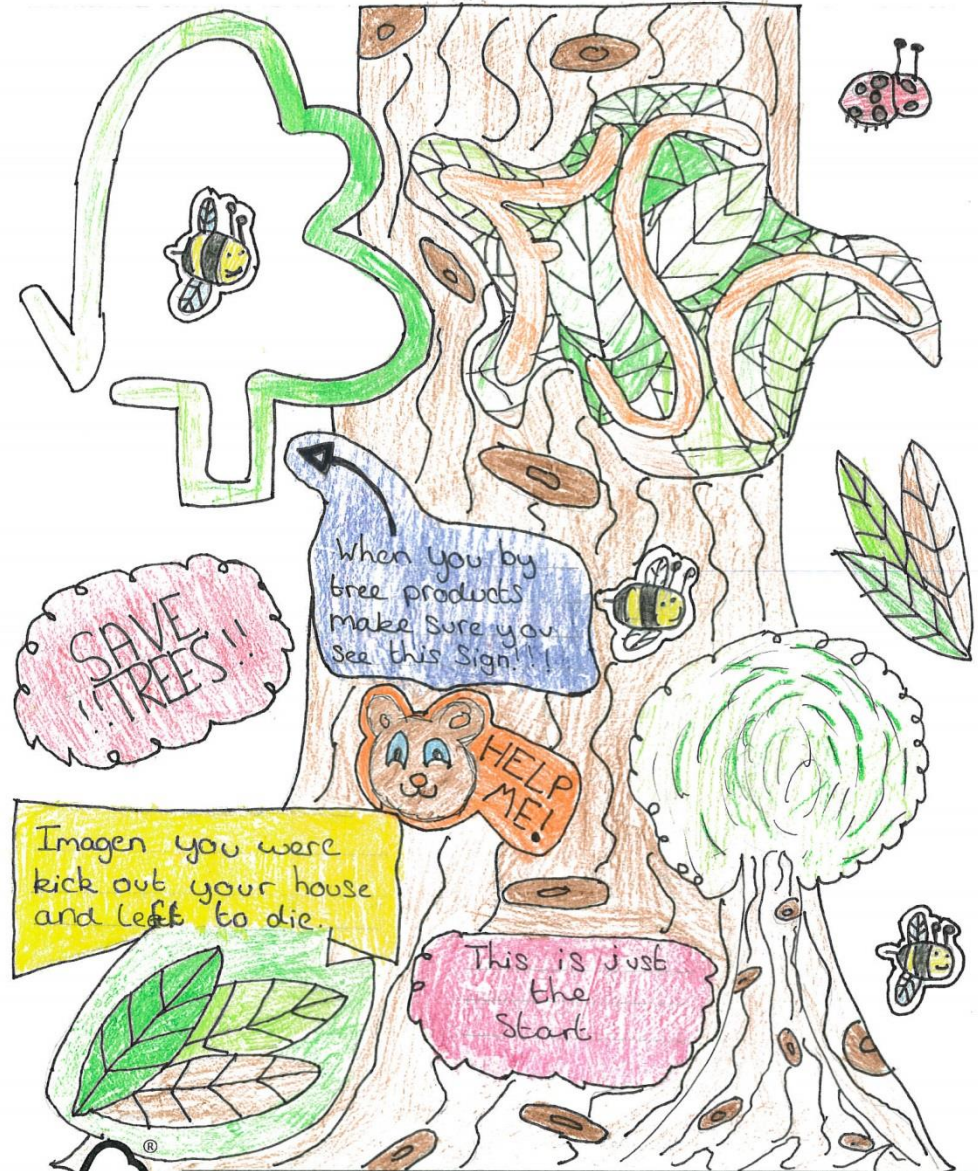 FSC
When you by
tree products
make sure you
see this sign!!!
SAVE
!!TREES!!
HELP
ME!
Imagen you were
kick out your house
and left to die..
This is just
the
Start
®